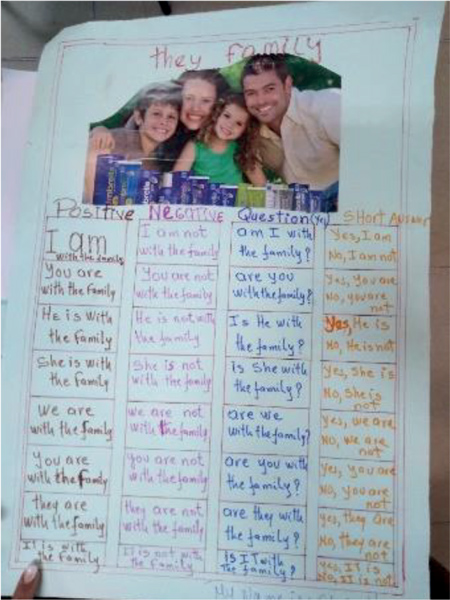 they family
Positive Negative Question(yn) Short Answer
I am
with the family
I am not
with the family
am I with
the family?
Yes, I am
No, I am not
You are
with the family
You are not
with the family
are you
with the family?
Yes, You are
No, you are
not
He is with
the family
He is not with
the family
Is He with
the family?
Yes, He is
No, He is not
She is with
the family
She is not
with the family
is She with
the family?
Yes, She is
No, She is
not
We are
with the family
we are not
with the family
are we
with the family?
Yes, we are
No, we are
not
you are
with the family
you are not
with the family
are you with
the family?
Yes, you are
No, you are
not
they are
with the family
they are not
with the family
are they with
the family?
yes, they are
No, they are
not
IT is with
the family
IT is not with
the family
is IT with
the family?
Yes, IT is
No, IT is not
My Name is